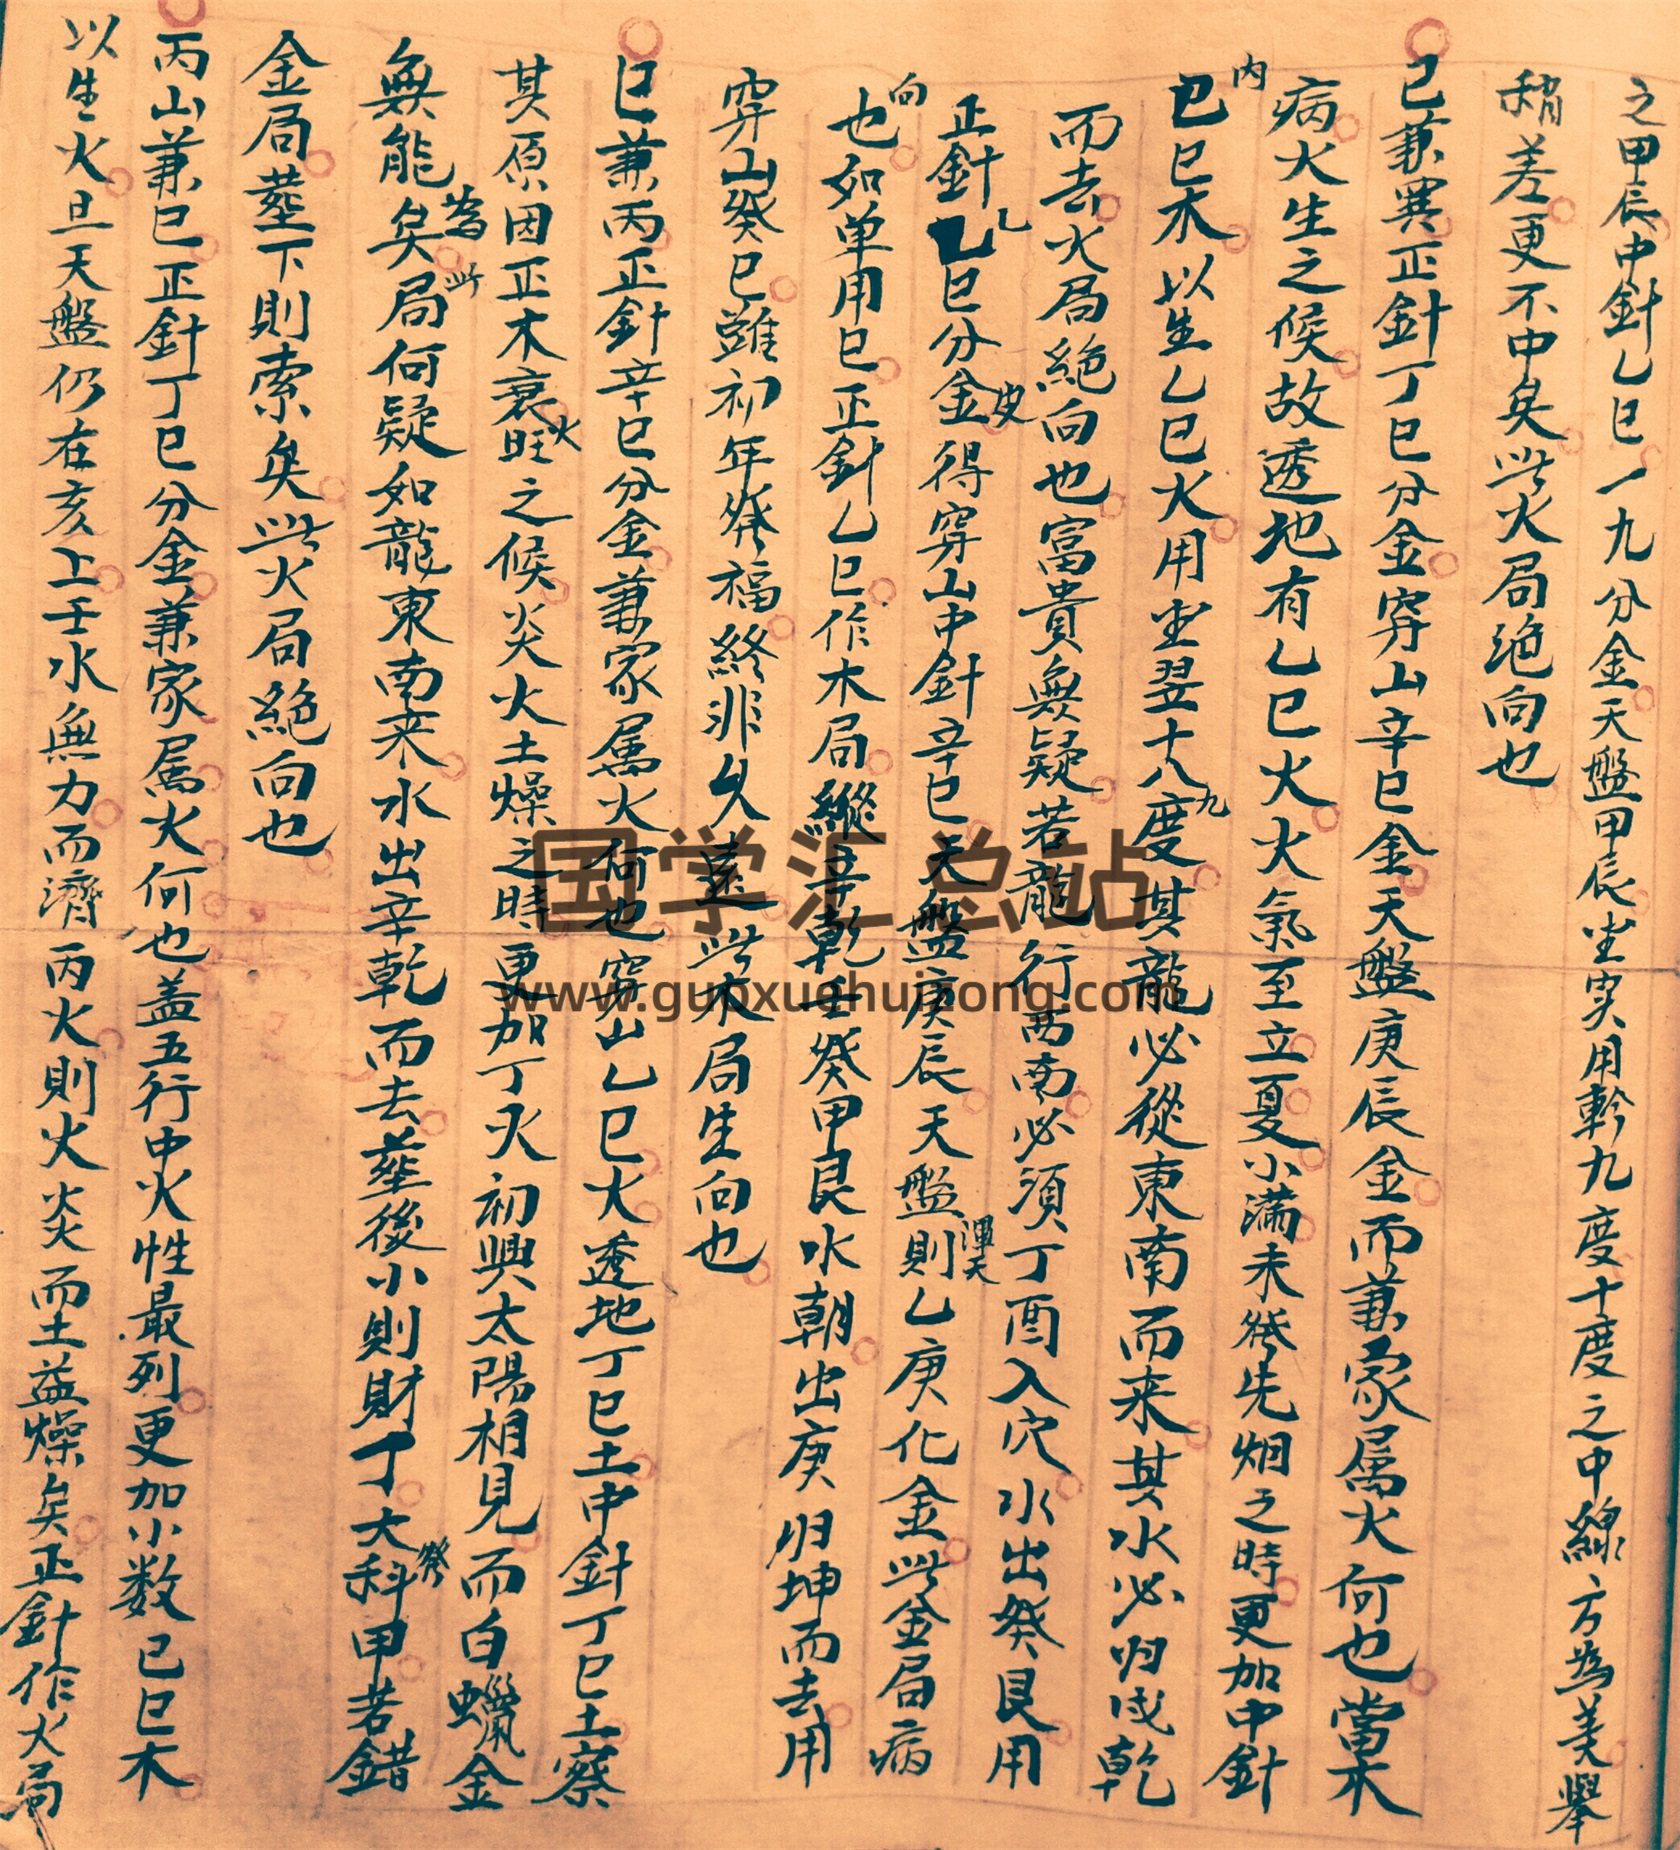 之甲辰中針乙巳一九分金天盤甲辰坐穴用軫九度十度之中線方為美舉
稍差更不中矣此火局絶向也
巳兼巽正針丁巳分金穿山辛巳金天盤庚辰金而兼家属火何也當木
病火生之候故透地有乙巳火火氣至立夏小滿未發先烟之時更加中針
内
巳巳木以生乙巳火用坐翌十八度其龍必從東南而来其水必归戌乾
九
而去火局絶向也富貴無疑若龍行西南必須丁酉入穴水出癸艮用
正針乙巳分金得穿山中針辛巳天盤庚辰天盤則乙庚化金此金局病
乙
皮
渾天
向
也如单用巳正針乙巳作木局縱辛乾壬癸甲艮水朝出庚归坤而去用
穿山癸巳虽初年發福終非久遠此木局生向也
巳兼丙正針辛巳分金兼家属火何也穿山乙巳火透地丁巳土中針丁巳土察
其原因正木衰旺之候炎火土燥之時更加丁火初興太陽相見而白蠟金
火
無能矣局何疑如龍東南来水出辛乾而去塟後小則財丁大科甲若錯
為
此
發
金局塟下則索矣此火局絕向也
丙山兼巳正針丁巳分金兼家属火何也盖五行中火性最列更加小数巳巳木
以生火旦天盤仍在亥上壬水無力而濟丙火則火炎而土益燥矣正針作火局
国学汇总站
www.guoxuehuizong.com